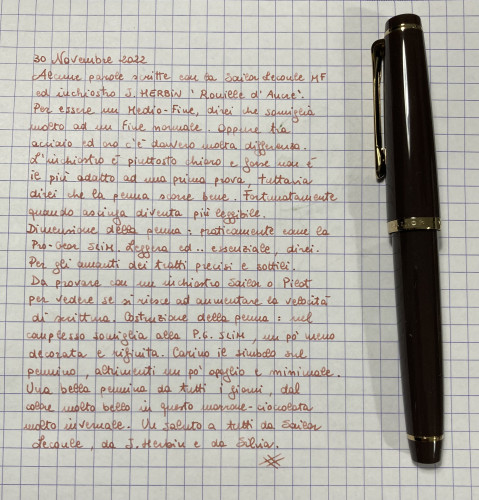 30 Novembre 2022
Alcune parole scritte con la Sailor Lecoule MF
ed inchiostro J. HERBIN 'Rouille d'Ancre'.
Per essere un Medio-Fine, direi che somiglia
molto ad un Fine normale. Oppure tra
acciaio ed oro c'è davvero molta differenza.
L'inchiostro è piuttosto chiaro e forse non è
il più adatto ad una prima prova, tuttavia
direi che la penna scorre bene. Fortunatamente
quando asciuga diventa più leggibile.
Dimensione della penna: praticamente come la
Pro-Gear SLIM. Leggera ed.. essenziale, direi.
Per gli amanti dei tratti precisi e sottili.
Da provare con un inchiostro Sailor o Pilot
per vedere se si riesce ad aumentare la velocità
di scrittura. Costruzione della penna: nel
complesso somiglia alla P.G. SLIM, un po' meno
decorata e rifinita. Carino il simbolo sul
pennino, altrimenti un po' spoglio e minimale.
Una bella pennina da tutti i giorni, dal
colore molto bello in questo marrone-cioccolata
molto invernale. Un saluto a tutti da Sailor
Lecoule, da J. Herbin e da Silvia.